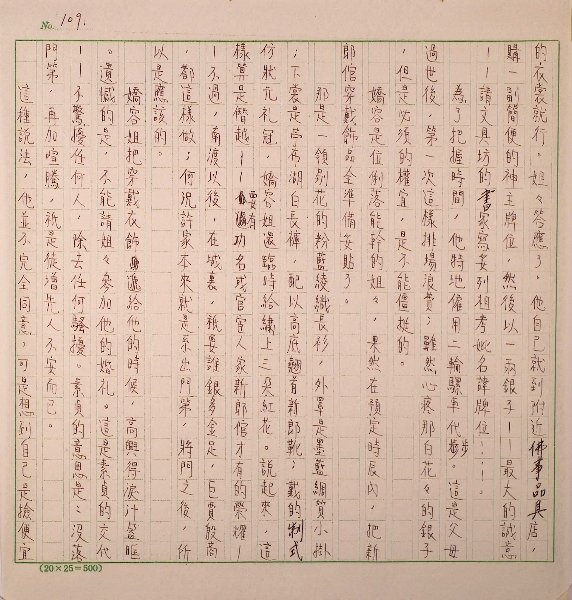 No. 109.
的衣裳就行。姐々答應了，他自己就到附近佛事品具店，
購一副簡便的神主牌位，然後以一兩銀子——最大的誠意
——請文具坊的書家寫妥列祖考妣名諱牌位……。
為了把握時間，他特地僱用二輪騾車代步。這是父母
過世後，第一次這樣排場浪費；雖然心疼那白花々的銀子
，但是必須的權宜，是不能僵挺的。
嬌容是位俐落能幹的姐々，果然在預定時辰內，把新
郎倌穿戴飾品全準備妥貼了。
那是一領別花的粉藍綾織長衫，外罩是墨藍綢質小掛
；下裳是四布湖白長褲，配以高底翹首新郎靴；戴的制式
仿狀元禮冠，嬌容姐還臨時給繡上三朵紅花。說起來，這
樣算是僭越——要有功名或官宦人家新郎倌才有的榮耀—
—不過，南渡以後，在城裏，祇要誰銀多金足，巨賈殷商
，都這樣做；何況許家本來就是系出門第，將門之後，所
以是應該的。
嬌容姐把穿戴衣飾遞給他的時候，高興得淚汁盈眶
。遺憾的是，不能請姐々參加他的婚禮。這是素貞的交代
——不驚擾任何人，除去任何騷擾。素貞的意思是：沒落
門第，再加喧騰，祇是徒增先人不安而已。
這種說法，他並不完全同意，可是想到自己是撿便宜
(20×25=500)